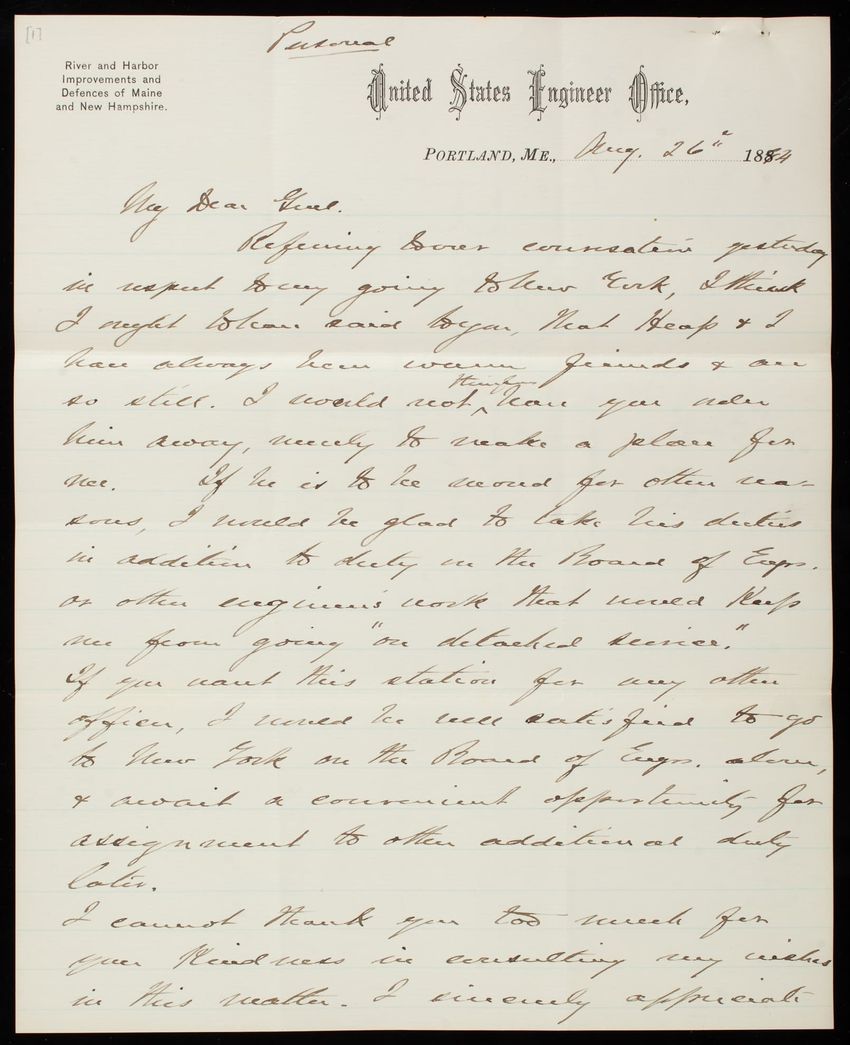 [1]
Personal
River and Harbor
Improvements and
Defences of Maine
and New Hampshire.
United States Engineer Office,
PORTLAND, ME., Aug. 26" 1884
My Dear Genl.
Referring to our conversation yesterday
in respect to my going to New York, I think
I ought to have said to you, that Heap & I
have always been warm friends & are
so still. I would not, therefore have you order
him away, merely to make a place for
me. If he is to be moved for other rea-
sons, I would be glad to take his duties
in addition to duty on the Board of Engrs.
or other engineer's work that would keep
me from going "on detached service."
If you want this station for any other
officer, I would be well satisfied to go
to New York on the Board of Engrs. alone,
& await a convenient opportunity for
assignment to other additional duty
later.
I cannot thank you too much for
your kindness in consulting my wishes
in this matter. I sincerely appreciate